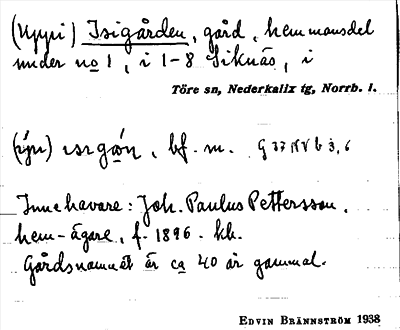 (Uppi) Isigården, gård, hemmansdel
under no 1, i 1-8 Siknäs, i
Töre sn, Nederkalix tg, Norrb. l.
bf. m.
Innehavare: Joh. Paulus Pettersson,
hem-ägare, f. 1896. kh.
Gårdsnamnet är ca 40 år gammal.
EDVIN BRÄNNSTRÖM 1938